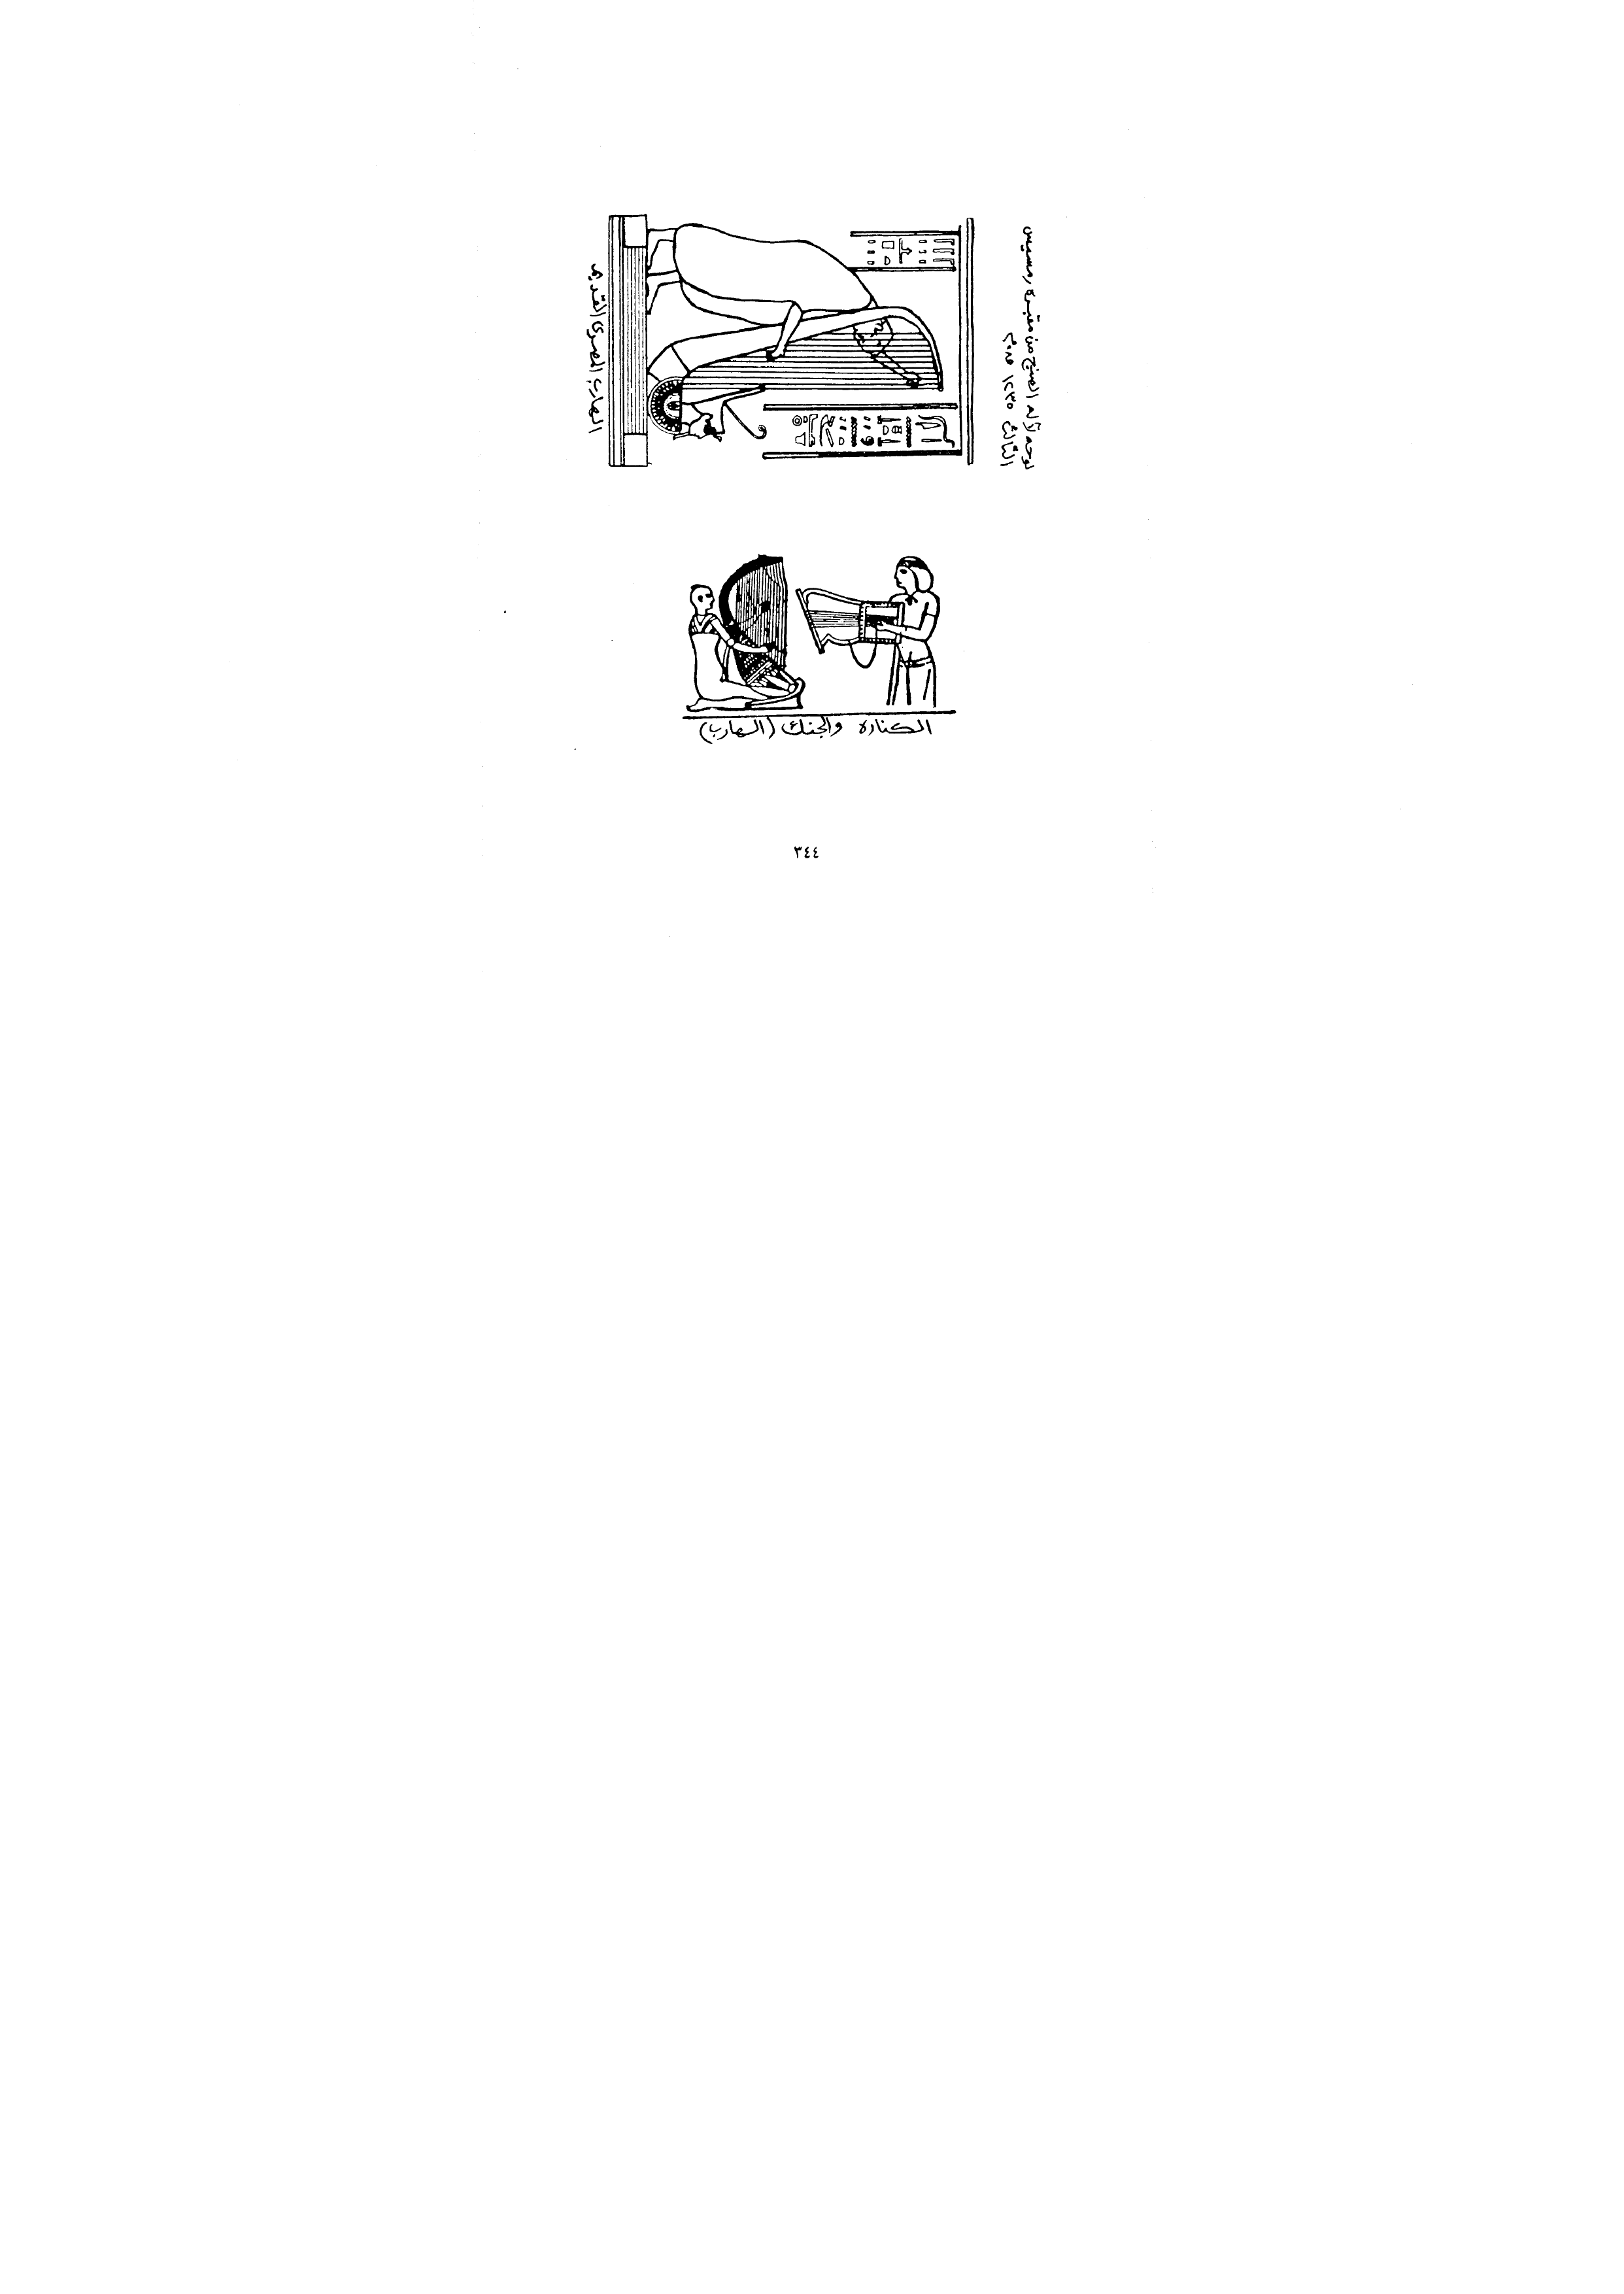 لوحه لآله الصنج من مقبرة رمسيس
الثالث ١٢٣٥ ق.م
الهارب المصرى القديم
الكناره والجنك (الهارب)
٣٤٤